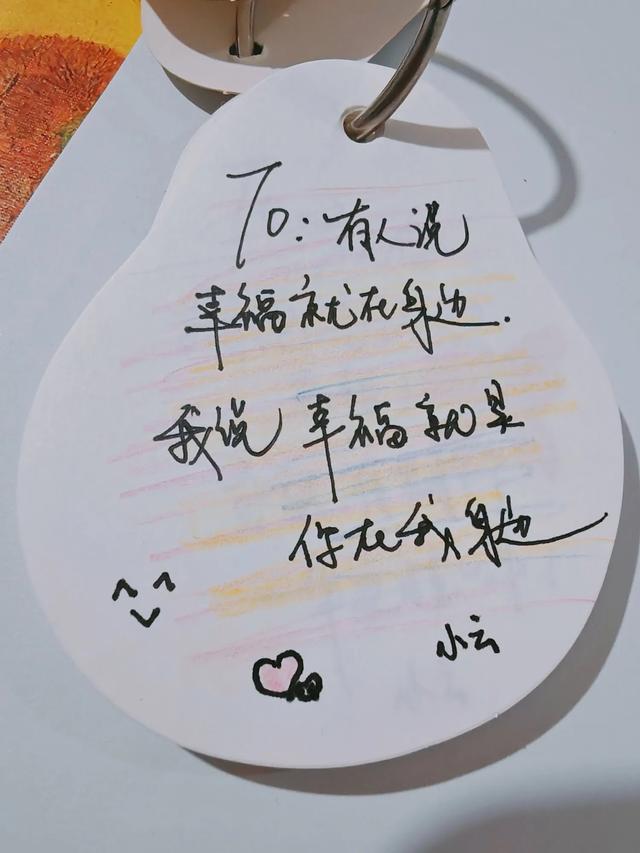 To: 有人说
幸福就在身边.
我说 幸福就是
你在我身边
小云